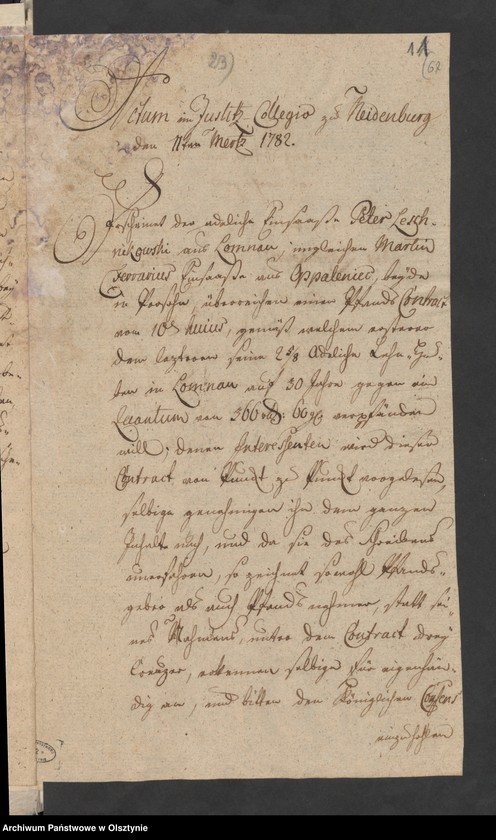 11
213
62
Actum im Justitz-Collegio zu Neidenburg
den 11ten Mertz 1782.
Es
erscheinet der adeliche Einsaaße Peter Lesch-
nikowski aus Lomnau, imgleichen Martin
Ferrarius Einsaaße aus Oppaleniec, beyde
in Persohn, überreichen einen Pfands Contract
vom 10ten huius, gemäß welchem ersterer
dem letzteren seine 2 5/8 Adeliche Lehn-Hu-
ben in Lomnau auf 30 Jahre gegen ein
Quantum von 566 rthl: 60 gr verpfänden
will; denen Interessenten wird dieser
Contract von Punct zu Punct vorgelesen,
selbige genehmigen ihn dem ganzen
Inhalt nach, und da sie des Schreibens
unerfahren, so zeichnet sowohl Pfands-
geber als auch Pfands nehmer, statt sei-
nes Nahmens, unter dem Contract drey
Creuzer, erkennen selbige für eigenhän-
dig an, und bitten den Königlichen Consens
einzuhohlen
Archiwum Państwowe w Olsztynie